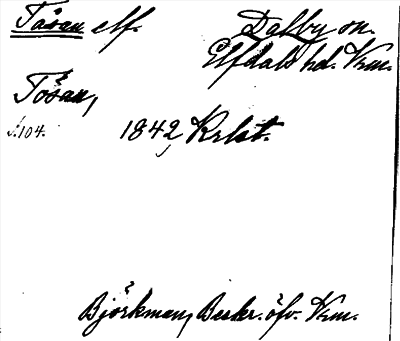 Tåsan elf. Dalby sn.
Elfdals hd. Vrm.
Tösan,
s. 104. 1842, Krlst.
Björkman, Beskr. öfv. Vrm.